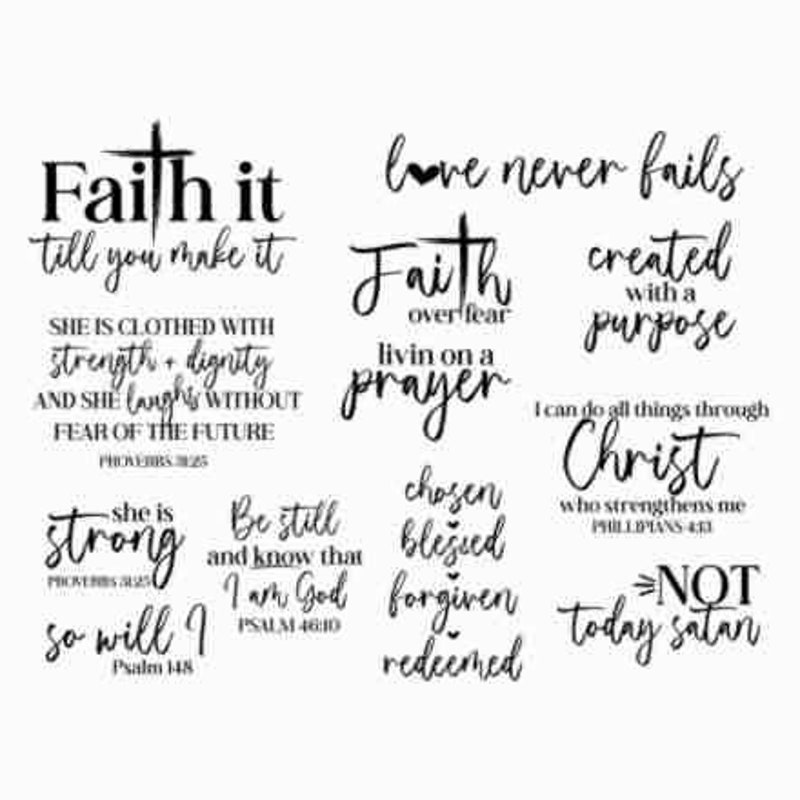 Faith it
till you make it
love never fails
Faith
over fear
created
with a
purpose
SHE IS CLOTHED WITH
strength + dignity
AND SHE laughs WITHOUT
FEAR OF THE FUTURE
PROVERBS 31:25
livin on a
prayer
I can do all things through
Christ
who strengthens me
PHILLIPIANS 4:13
she is
strong
PROVERBS 31:25
Be still
and know that
I am God
PSALM 46:10
chosen
blessed
forgiven
redeemed
so will I
Psalm 148
NOT
today satan